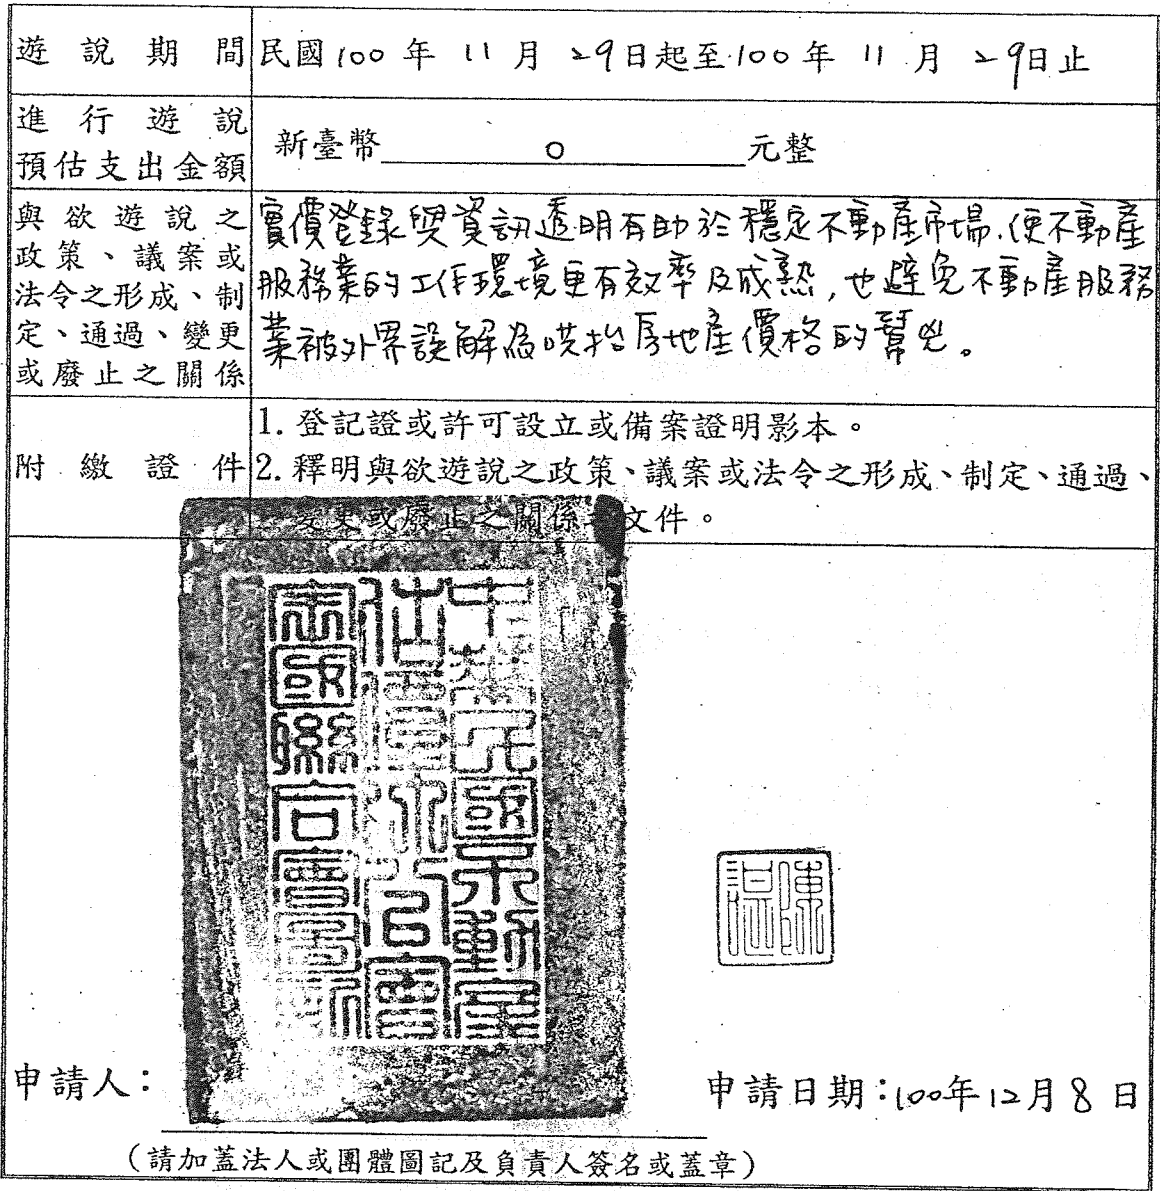 遊說期間 民國100年11月29日起至100年11月29日止
進行遊說
預估支出金額 新臺幣 0 元整
與欲遊說之
政策、議案或
法令之形成、制
定、通過、變更
或廢止之關係
實價登錄與資訊透明有助於穩定不動產市場,使不動產
服務業的工作環境更有效率及成熟,也避免不動產服務
業被外界誤解為哄抬房地產價格的幫兇。
附繳證件
1. 登記證或許可設立或備案證明影本。
2. 釋明與欲遊說之政策、議案或法令之形成、制定、通過、
變更或廢止之關係 文件。
中華民國不動產
估價師公會
全國聯合會
陳諶
申請人:
申請日期:100年12月8日
(請加蓋法人或團體圖記及負責人簽名或蓋章)